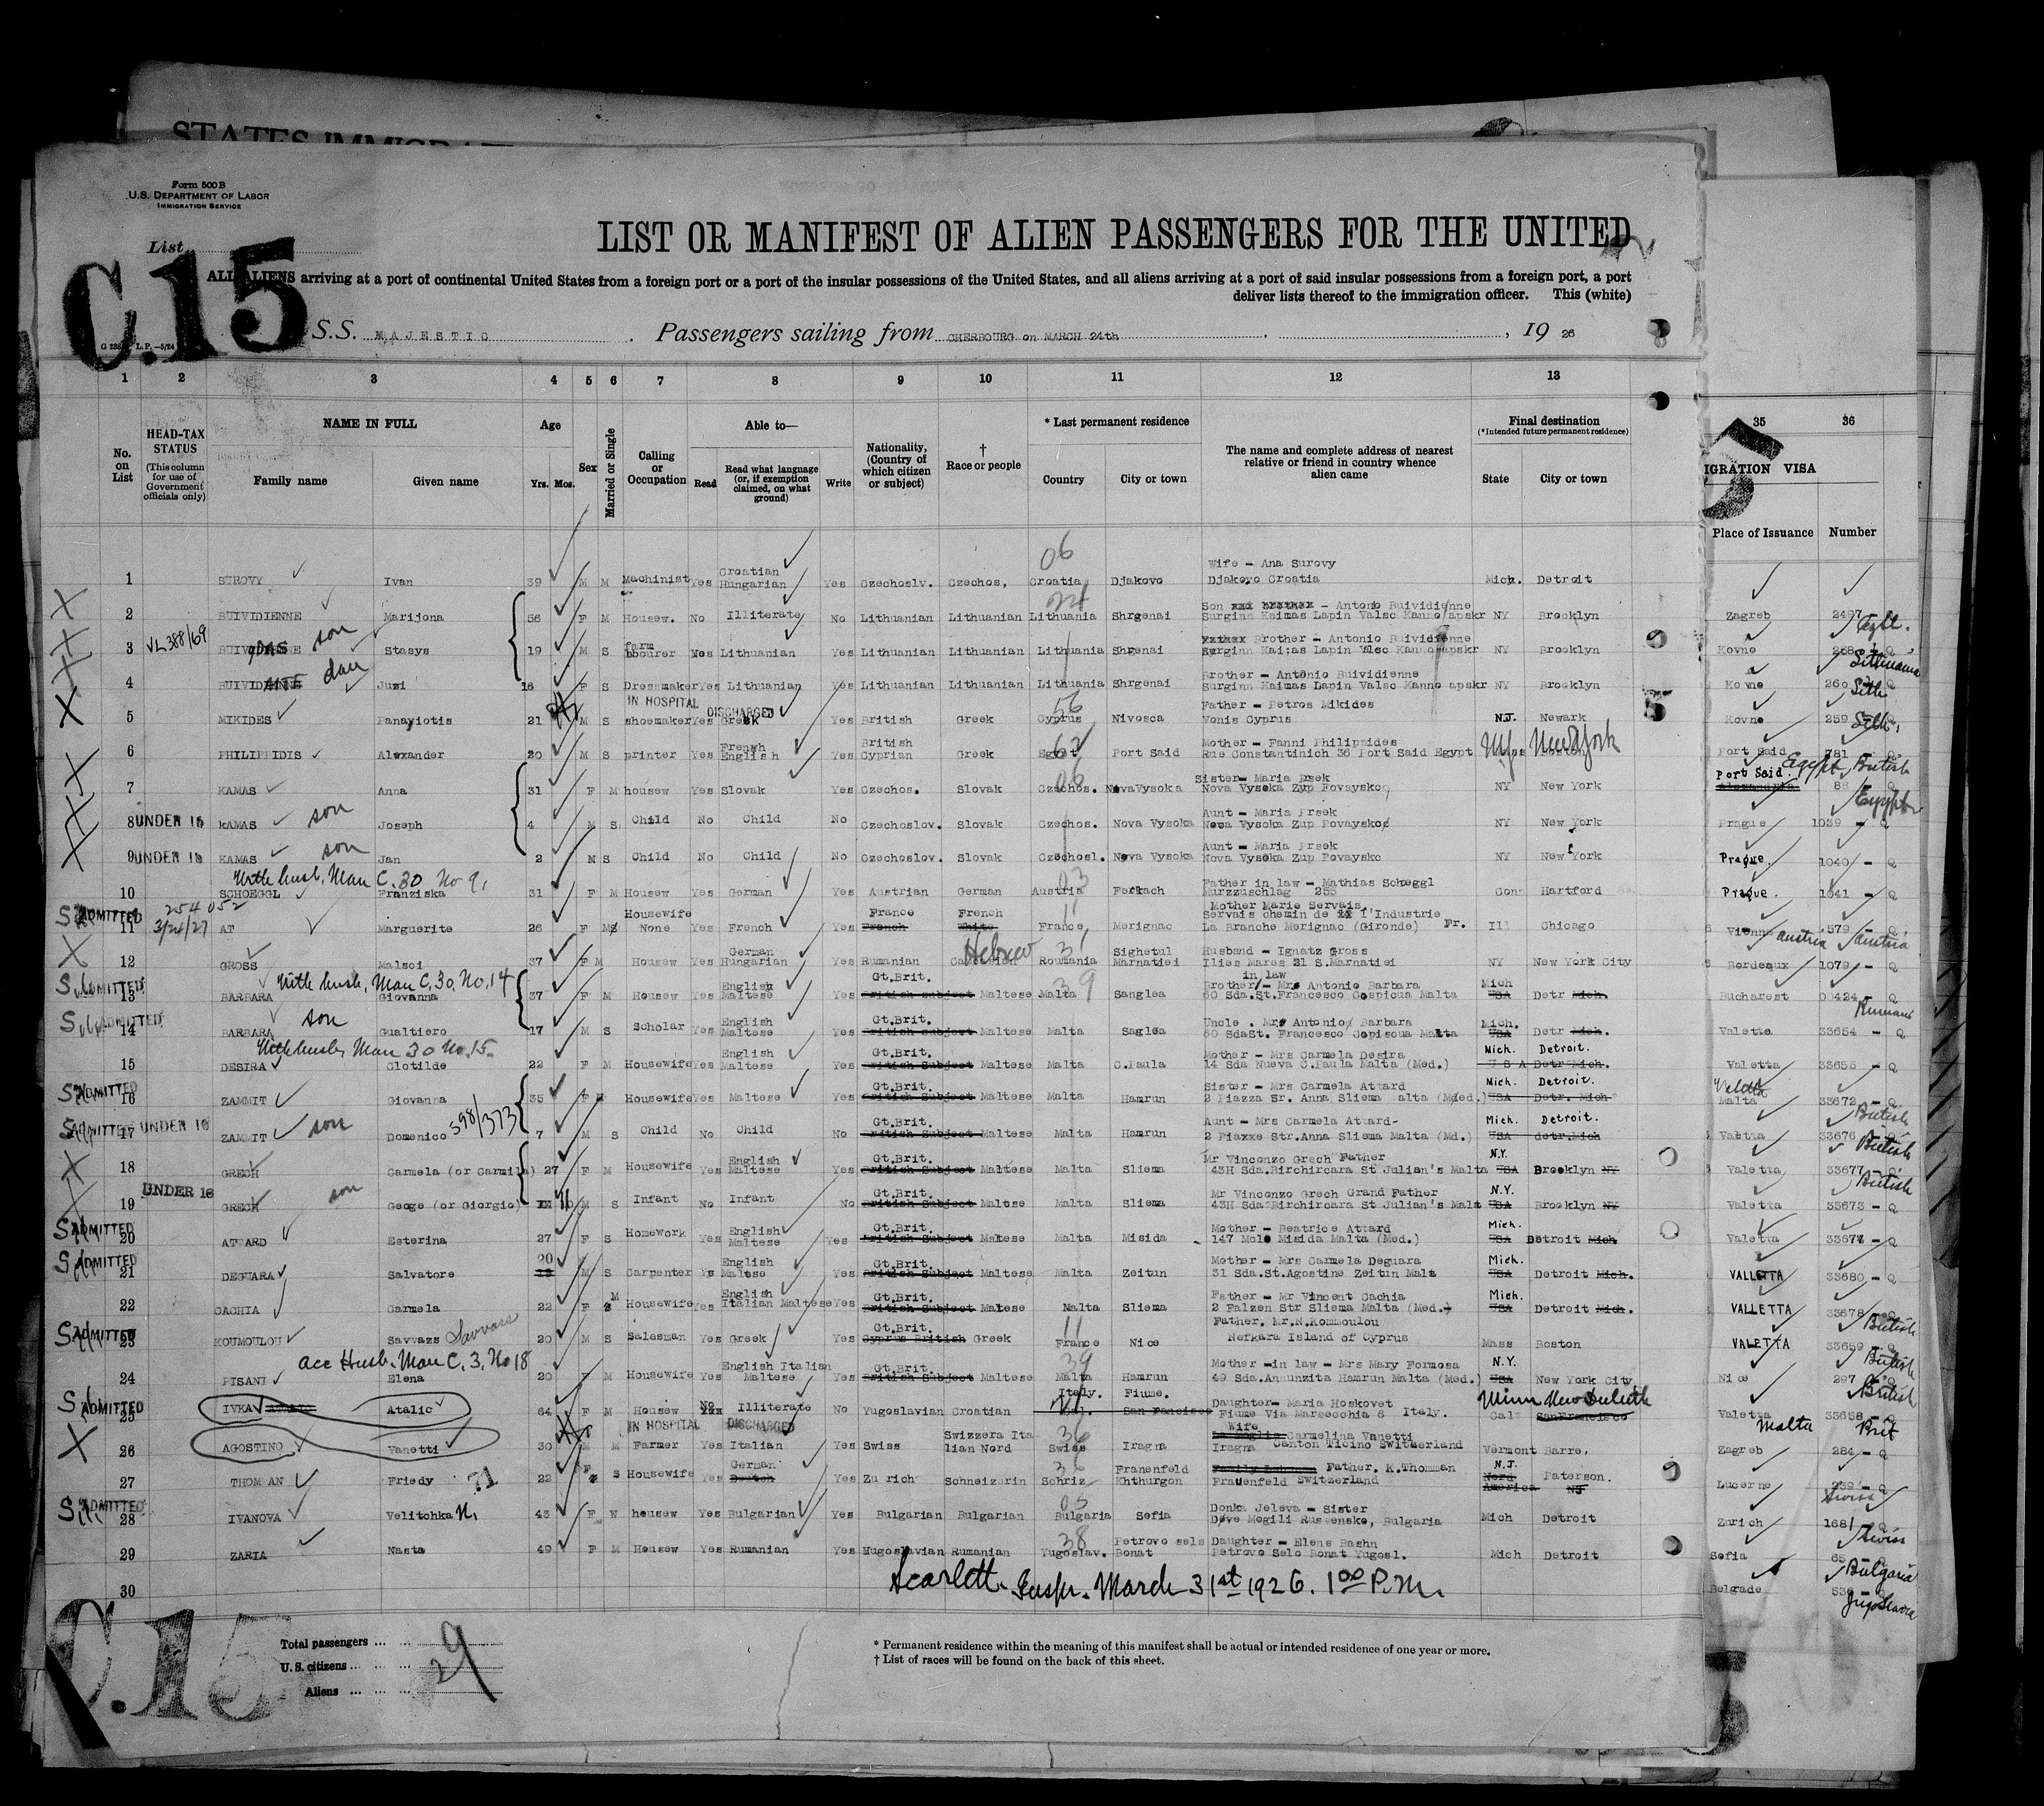 STATES IMMIGRAT
Form 500 B
U.S. DEPARTMENT OF LABOR
IMMIGRATION SERVICE
List
C.15
LIST OR MANIFEST OF ALIEN PASSENGERS FOR THE UNITED
ALL ALIENS arriving at a port of continental United States from a foreign port or a port of the insular possessions of the United States, and all aliens arriving at a port of said insular possessions from a foreign port, a port
deliver lists thereof to the immigration officer. This (white)
S.S. MAJESTIC . Passengers sailing from CHERBOURG on MARCH 24th , 19 26
1 2 3 4 5 6 7 8 9 10 11 12 13 35 36
No. on List
HEAD-TAX STATUS (This column for use of Government officials only)
NAME IN FULL
Family name Given name
Age Yrs. Mos.
Sex
Married or Single
Calling or Occupation
Able to—
Read Read what language (or, if exemption claimed, on what ground) Write
Nationality, (Country of which citizen or subject)
† Race or people
* Last permanent residence
Country City or town
The name and complete address of nearest relative or friend in country whence alien came
Final destination
(*Intended future permanent residence)
State City or town
IGRATION VISA
Place of Issuance Number
1 SUROVY Ivan 39 M M Machinist Yes Croatian Hungarian Yes Czechoslv. Czechos, Croatia Djakovo Wife - Ana Surovy Djakovo Croatia Mich. Detroit
2 BUIVIDIENNE Marijona 56 F M Housew. No Illiterate No Lithuanian Lithuanian Lithuania Shrgenai Son - Antono Buividienne Surginn Kaimas Lapin Valsc Kanno apskr NY Brooklyn Zagreb 2497
3 VL388/69 son Stasys 19 M S farm Lithuanian Yes Lithuanian Lithuanian Lithuania Shrgenai Brother - Antonio Buividienne NY Brooklyn Kovno
4 dau Juzi 16 F S Dressmaker Yes Lithuanian Yes Lithuanian Lithuanian Lithuania Shrgenai Brother - Antonio Buividienne Surginn Kaimas Lapin Valsc Kanno apskr NY Brooklyn Kovno 260
IN HOSPITAL DISCHARGED
5 MIKIDES Panayiotis 21 M S shoemaker Yes Greek Yes British Greek Cyprus Nivosca Father - Petros Mikides Vonis Cyprus N.J. Newark Kovno 259
6 PHILIPPIDIS Alexander 20 M S printer Yes French English Yes British Cyprian Greek Egypt Port Said Mother - Fanni Philippides Rue Constantinich 36 Port Said Egypt NY New York Port Said 781 Egypt British
7 KAMAS Anna 31 F M housew Yes Slovak Yes Czechos. Slovak Czechos. NovaVysoka Sister - Maria Prsek Nova Vysoka Zup Povaysko NY New York Port Said. 88 Egypt
8 UNDER 16 KAMAS son Joseph 4 M S Child No Child No Czechoslov. Slovak Czechos. Nova Vysoka Aunt - Maria Prsek Nova Vysoka Zup Povaysko NY New York Prague 1039 - Q
9 UNDER 16 KAMAS son Jan 2 M S Child No Child No Czechoslov. Slovak Czechosl. Nova Vysoka Aunt - Maria Prsek Nova Vysoka Zup Povaysko NY New York Prague. 1040 - Q
With husb, Man C. 30 No 9,
10 SCHOEGGL Franziska 31 F M Housew Yes German Yes Austrian German Austria Father in law - Mathias Schoeggl Murzzuschlag 255 Conn Hartford Prague. 1041 - Q
254052
11 ADMITTED 3/24/27 AT Marguerite 26 F Housewife None Yes French Yes France French French White France Merignac Mother Marie Servais. Servais chemin de l'Industrie La Branche Merignac (Gironde) Fr. Ill Chicago Vienna 579 - Q Austria Austria
12 GROSS Malsoi 37 F M Housew Yes German Hungarian Yes Rumanian Hebrew Roumania Sighetul Marnatiei Husband - Ignatz Gross Ilies Mares 21 S.Marnatiei NY New York City Bordeaux 1079 - Q
With husb, Man C. 30, No. 14
13 ADMITTED BARBARA Giovanna 37 F M Housew Yes English Maltese Yes Gt.Brit. British subject Maltese Malta Sanglea in law Brother - Mrs Antonio Barbara 60 Sda.St.Francesco Cospicua Malta Mich USA Detr Mich. Bucharest 00424 - Q Rumania
14 ADMITTED BARBARA son Gualtiero 17 M S Scholar Yes English Maltese Yes Gt.Brit. British subject Maltese Malta Saglea Uncle . Mr Antonio Barbara 60 SdaSt. Francesco Copiscua Malta Mich. USA Detr Mich. Valetta 33654 - Q
With husb, Man 30 No. 15
15 DESIRA Clotilde 22 F M Housewife Yes English Maltese Yes Gt.Brit. British Subject Maltese Malta C.Paula Mother - Mrs Carmela Desira 14 Sda Nueva C.Paula Malta (Med.) Mich. Detroit. U S A Detr Mich. Valetta 33655 - Q
16 ADMITTED ZAMMIT Giovanna 35 F Housewife Yes Maltese Yes Gt.Brit. British Subject Maltese Malta Hamrun Sister - Mrs Carmela Attard 2 Piazza Sr. Anna Sliema alta (Med.) Mich. Detroit. USA Detr. Mich Malta 33672 - Q British
17 ADMITTED UNDER 16 ZAMMIT son Domenico 598/373 7 M S Child No Child No Gt.Brit. British Subject Maltese Malta Hamrun Aunt - Mrs Carmela Attard 2 Piaxxe Str.Anna Sliema Malta (Md.) Mich. Detroit. USA detr.Mich Valetta 33676 British
18 GRECH Carmela (or Carmila) 27 F M Housewife Yes English Maltese Yes Gt.Brit. British Subject Maltese Malta Sliema Mr Vinconzo Grech Father 43H Sda.Birchircara St Julian's Malta N.Y. USA Brooklyn NY Valetta 33677 - Q British
19 UNDER 16 GRECH son Geoge (or Giorgio) 11 M S Infant No Infant No Gt.Brit. British Subject Maltese Malta Sliema Mr Vinconzo Grech Grand Father 43H Sda Birchircara St Julian's Malt N.Y. USA Brooklyn NY Valetta 33673 - Q
20 ADMITTED ATTARD Esterina 27 F S Homework Yes English Maltese Yes Gt.Brit. British Subject Maltese Malta Misida Mother - Beatrice Attard 147 Mole Misida Malta (Med.) Mich. USA Detroit Mich Valetta 33674 - Q
21 ADMITTED DEGUARA Salvatore 20 M S Carpenter English Maltese Yes Gt.Brit. British Subject Maltese Malta Zeitun Mother - Mrs Carmela Deguara 31 Sda.St.Agostine Zeitun Malt Mich. USA Detroit Mich. VALLETTA 33680 - Q
22 CACHIA Carmela 22 F M Housewife Yes English Italian Maltese Yes Gt.Brit. British Subject Maltese Malta Sliema Father - Mr Vincent Cachia 2 Falzen Str Sliema Malta (Med.) Mich. USA Detroit Mich. VALLETTA 33678 - Q British
23 ADMITTED KOUMOULOU Savvazs Savvas 20 M S Salesman Yes Greek Yes Gt.Brit. Cyprus British Greek France Nice Father. Mr.N.Kommoulou Nefkara Island of Cyprus Mass Boston VALETTA 33659 - Q British
acc Husb. Man C. 3, No 18
24 PISANI Elena 20 F M Housewife Yes English Italian Maltese Yes Gt.Brit. British Subject Maltese Malta Hamrun Mother -in law - Mrs Mary Formosa 49 Sda.Annunzita Hamrun Malta (Med.) N.Y. USA New York City Nice 297 British
25 ADMITTED IVKA Atalic 64 F M Housew No Illiterate No Yugoslavian Croatian Italy. Fiume. San Fancisco Daughter- Maria Hoskovet Fiume Via Marecchia 6 Italy. Minn New Duluth Cal SanFrancisco Valetta 33658 - Q Malta Brit
IN HOSPITAL DISCHARGED
26 AGOSTINO Vanetti 30 M M Farmer Yes Italian Yes Swiss Swizzera Italian Nord Swiss Iragna Wife Carmelina Vanetti Iragna Canton Ticino Switzerland Vermont Barre, Zagreb 284 - Q
27 THOMAN Friedy 22 F S Housewife Yes German Yes Zurich Schneizerin Schriz Franenfeld Khthurgon Father. K.Thomman Frauenfeld Switzerland N.J. Nord America Paterson. NJ Lucerne Swiss
28 ADMITTED IVANOVA Velitchka N, 43 F W housew Yes Bulgarian Yes Bulgarian Bulgarian Bulgaria Sofia Donka Jeleva - Sister Deve Mogili Russenske, Bulgaria Mich Detroit Zurich 1681 Swiss
29 ZARIA Nasta 49 F M Housew Yes Rumanian Yes Yugoslavian Rumanian Yugoslav. Petrovo sels Bonat Daughter - Elens Bashn Petrovo Selo Bonat Yugosl. Mich Detroit Sofia 65 Bulgaria
30 Belgrade Jugoslavia
Scarlett. Inspr. March 31st 1926. 1 00 P.M.
C.15
Total passengers ... ...
U.S. citizens ... ...
Aliens ... ...
29
* Permanent residence within the meaning of this manifest shall be actual or intended residence of one year or more.
† List of races will be found on the back of this sheet.